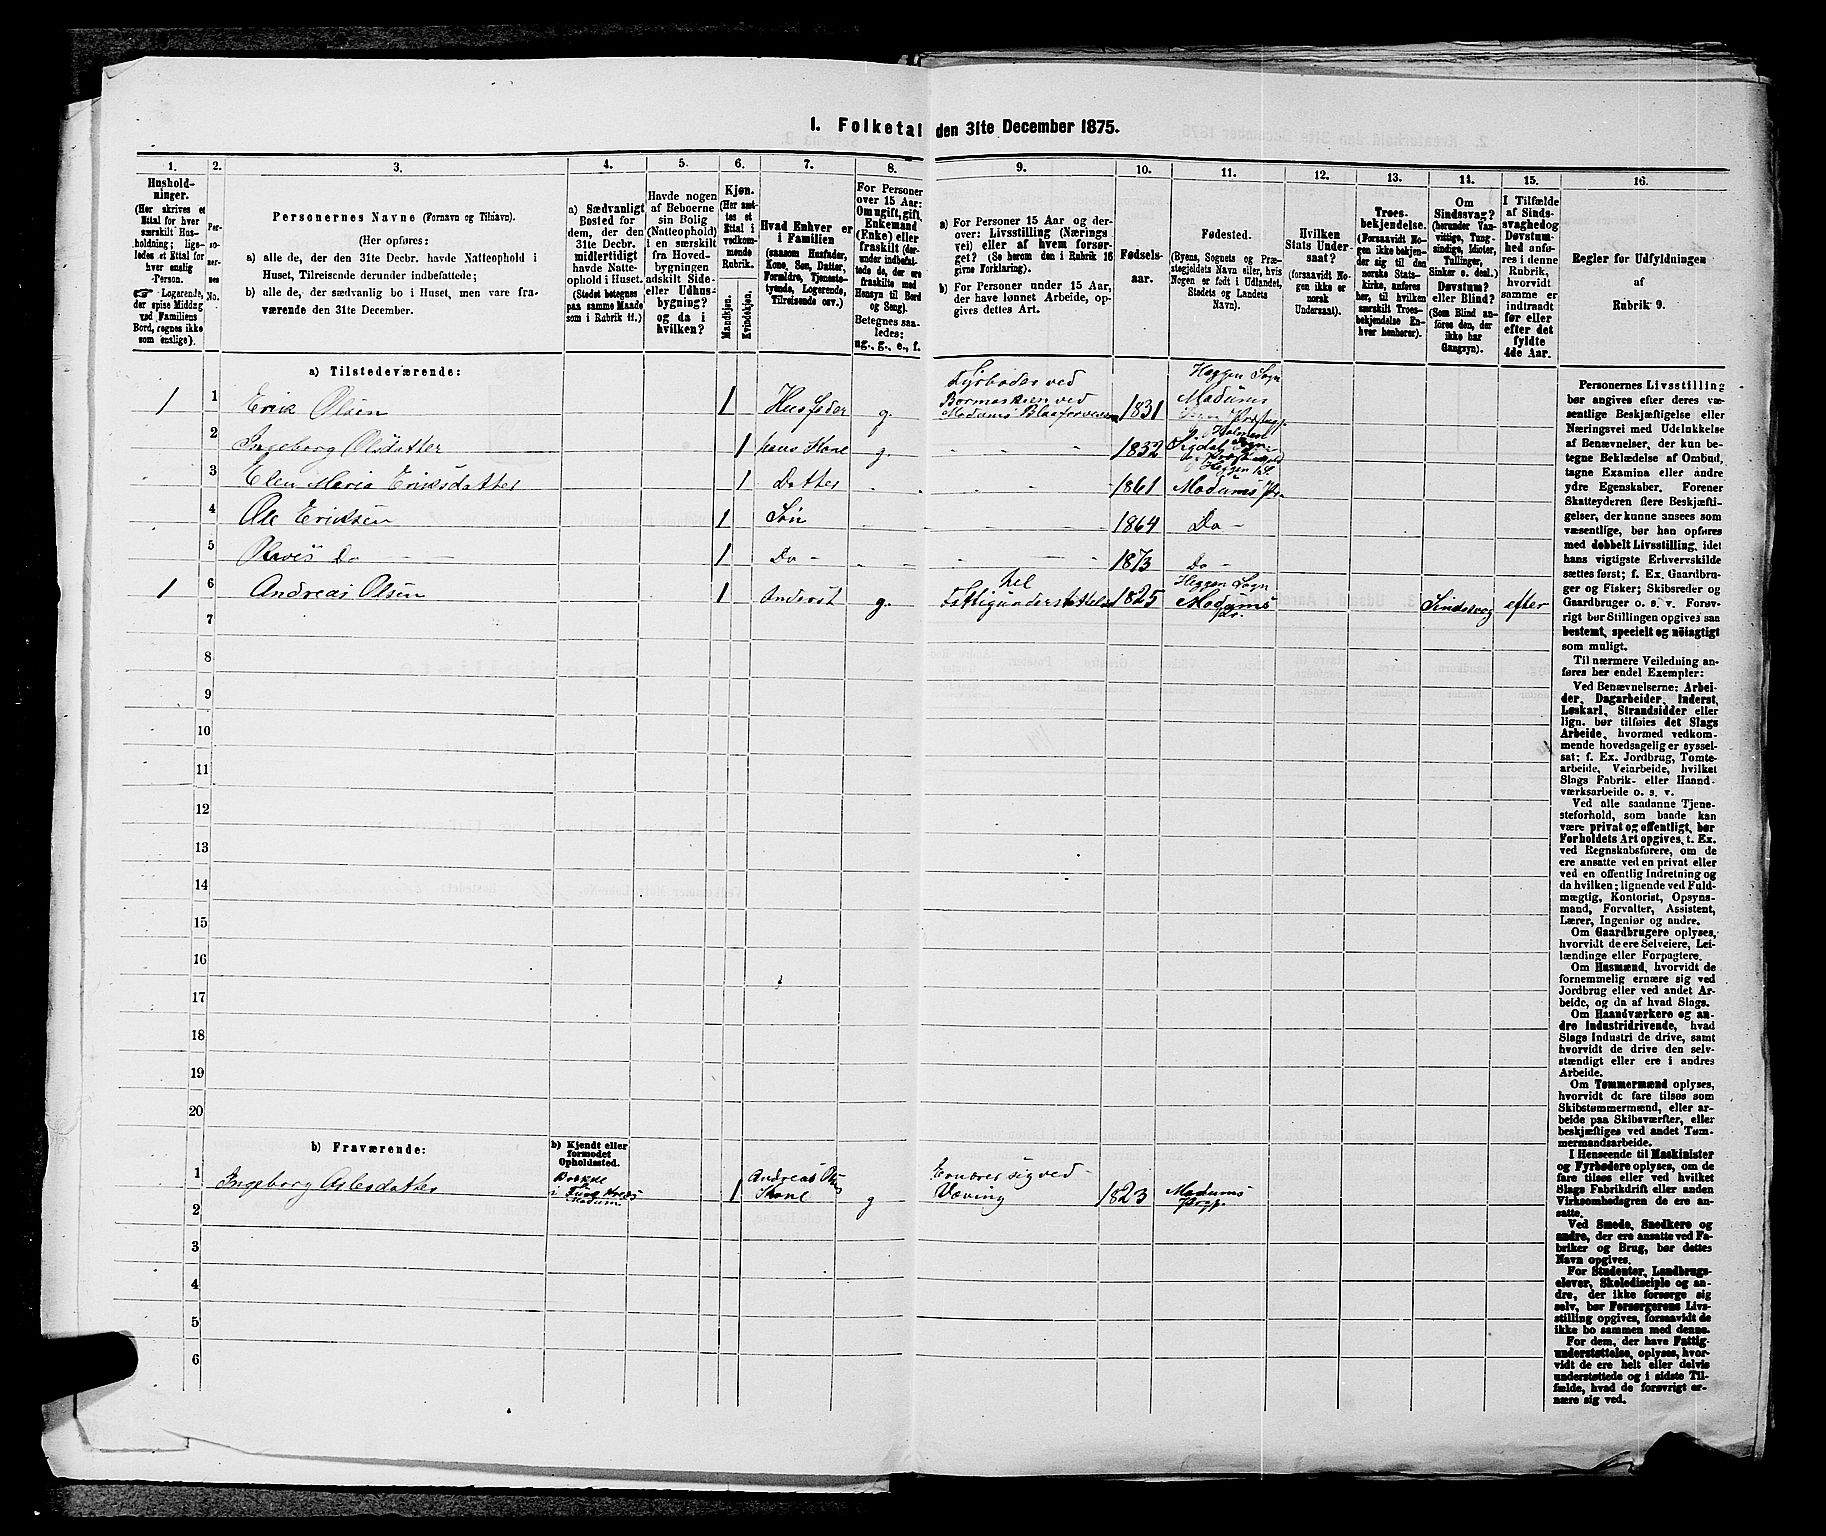 1. Folketal den 31te December 1875.
1.
2.
3.
4.
5.
6.
7.
8.
9.
10.
11.
12.
13.
14.
15.
16.
Hushold-
ninger.
(Her skrives et
Ettal for hver
særskilt Hus-
holdning; lige-
ledes et Ettal for
hver enslig
Person.
☞ Logerende,
der spise Middag
ved Familiens
Bord, regnes ikke
som enslige).
Per-
so-
ner-
nes
No.
Personernes Navne (Fornavn og Tilnavn).
(Her opføres:
a) alle de, der den 31te Decbr. havde Natteophold i
Huset, Tilreisende derunder indbefattede;
b) alle de, der sædvanlig bo i Huset, men vare fra-
værende den 31te December.
a) Sædvanligt
Bosted for
dem, der den
31te Decbr.
midlertidigt
havde Natte-
ophold i Huset.
(Stedet betegnes
paa samme Maade
som i Rubrik 11.)
Havde nogen
af Beboerne
sin Bolig
(Natteophold)
i en særskilt
fra Hoved-
bygningen
adskilt Side-
eller Udhus-
bygning?
og da i
hvilken?
Kjøn.
(Her sæt-
tes et
Ettal i
vedkom-
mende
Rubrik.
Mandkjøn.
Kvindekjøn.
Hvad Enhver er
i Familien
(saasom Husfader,
Kone, Søn, Datter,
Forældre, Tjeneste-
tyende, Logerende,
Tilreisende osv.)
For Personer
over 15 Aar:
Om ugift, gift,
Enkemand
(Enke) eller
fraskilt (der-
under indbefat-
tede de, der ere
fraskilte med
Hensyn til Bord
og Seng).
Betegnes saa-
ledes:
ug., g., e., f.
a) For Personer 15 Aar og der-
over: Livsstilling (Nærings
vei) eller af hvem forsør-
get? (Se herom den i Rubrik 16
givne Forklaring).
b) For Personer under 15 Aar,
der have lønnet Arbeide, op-
gives dettes Art.
Fødsels-
aar.
Fødested.
(Byens, Sognets og Præ-
stegjeldets Navn eller, hvis
Nogen er født i Udlandet,
Stedets og Landets
Navn).
Hvilken
Stats Under-
saat?
(forsaavidt No-
gen ikke er
norsk
Undersaat).
Troes-
bekjendelse.
(Forsaavidt No-
gen ikke bekjen-
der sig til den
norske Stats-
kirke, anføres
her, til hvilken
særskilt Troes-
bekjendelse En-
hver henhører).
Om
Sindssvag?
(herunder Van-
vittige, Tung-
sindige, Idioter,
Tullinger,
Sinker o. desl.)
Døvstum?
eller Blind?
(Som Blind an-
føres den, der
ikke har
Gangsyn).
I Tilfælde
af Sinds-
svaghed og
Døvstum-
hed anfø-
res i denne
Rubrik,
hvorvidt
samme er
indtraadt
før eller
efter det
fyldte
4de Aar.
Regler for Udfyldningen
af
Rubrik 9.
a) Tilstedeværende:
1 1 Erik Olsen 1 Husfader g. Fyrbøder ved Bormaskien ved Modums Blaafarveværk 1831 Heggen Sogn Modums
2 Ingeborg Olsdatter 1 hans Kone g - 1832 Holmen Sogn Sigdal
3 Elen Maria Eriksdatter 1 Datter - 1861 Heggen Modums Pr.
4 Ole Eriksen 1 Søn - 1864 Do -
5 Do 1 Do - 1873 Do -
6 1 Andreas Olsen 1 g. hel Fattigunderstøttelse 1825 Heggen Sogn Modums Pr. Sindssvag efter
7
8
9
10
11
12
13
14
15
16
17
18
19
20
b) Fraværende:
b) Kjendt eller
formodet
Opholdssted.
1 Ingeborg Aslesdatter 1 Andreas Ols Kone g Ernærer sig ved Væving 1823 Modums Prgj.
i Modum
2
3
4
5
6
Personernes Livsstilling
bør angives efter deres væ-
sentlige Beskjæftigelse eller
Næringsvei med Udelukkelse
af Benævnelser, der kun be-
tegne Beklædelse af Ombud,
tagne Examina eller andre
ydre Egenskaber. Forener
Skatteyderen flere Beskjæfti-
gelser, der kunne ansees som
væsentlige, bør han opføres
med dobbelt Livsstilling, idet
hans vigtigste Erhvervskilde
sættes først; f. Ex. Gaardbru-
ger og Fisker; Skibsreder og
Gaardbruger o. s. v. Forøv-
rigt bør Stillingen opgives saa
bestemt, specielt og nöiagtigt
som muligt.
Til nærmere Veiledning an-
føres her endel Exempler:
Ved Benævnelserne: Arbei-
der, Dagarbeider, Inderst,
Løskarl, Strandsidder eller
lign. bør tilføies det Slags
Arbeide, hvormed vedkom-
mende hovedsagelig er syssel-
sat; f. Ex. Jordbrug, Tomte-
arbeide, Veiarbeide, hvilket
Slags Fabrik- eller Haand-
værksarbeide o. s. v.
Ved alle saadanne Tjene-
steforhold, som baade kan
være privat og offentligt, bør
Forholdets Art opgives, t. Ex.
ved Regnskabsførere, om de
ere ansatte ved en privat eller
ved en offentlig Indretning og
da hvilken; lignende ved Fuld-
mægtig, Kontorist, Opsyns-
mand, Forvalter, Assistent,
Lærer, Ingeniør og andre.
Om Gaardbrugere oplyses,
hvorvidt de ere Selveiere, Lei-
lændinge eller Forpagtere.
Om Husmænd, hvorvidt de
fornemmelig ernære sig ved
Jordbrug eller ved andet Ar-
beide, og da af hvad Slags.
Om Haandværkere og an-
dre Industridrivende, hvad
Slags Industri de drive, samt
hvorvidt de drive den selv-
stændigt eller ere i andres
Arbeide.
Om Tømmermænd oplyses,
hvorvidt de fare tilsøs som
Skibstømmermænd, eller ar-
beide paa Skibsværfter, eller
beskjæftiges ved andet Tøm-
mermandsarbeide.
I Henseende til Maskinister
og Fyrbødere oplyses, om de
fare tilsøs eller ved hvilket
Slags Fabrikdrift eller anden
Virksomhedsgren de ere an-
satte.
Ved Smede, Snedkere og
andre, der ere ansatte ved Fa-
briker og Brug, bør dettes
Navn opgives.
For Studenter, Landbrugs-
elever, Skoledisciple og an-
dre, der ikke forsørge sig
selv, bør Forsørgerens Livs-
stilling opgives, forsaavidt de
ikke bo sammen med denne.
For dem, der have Fattig-
understøttelse, oplyses, hvor-
vidt de ere helt eller delvis
understøttede og i sidste Til-
fælde, hvad de forøvrigt er-
nære sig ved.